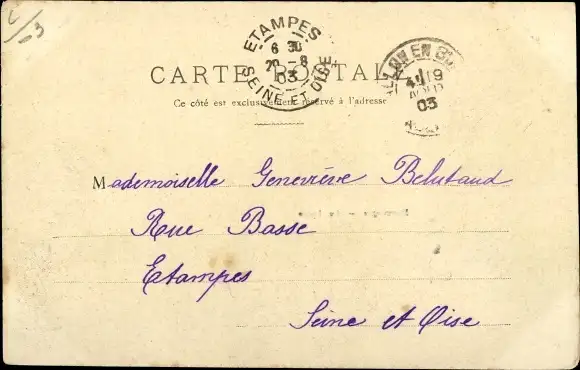 ETAMPES
6 30
20 -8
03
SEINE ET OISE
19
03
CARTE POSTALE
Ce côté est exclusivement réservé à l'adresse
Mademoiselle Geneviève Belutaud
Rue Basse
Etampes
Seine et Oise